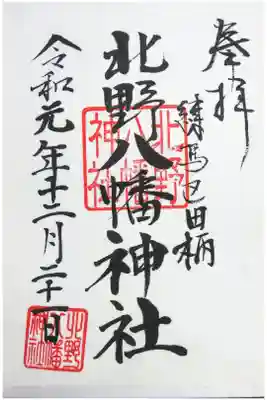 奉拝
練馬区田柄
北野八幡神社
令和元年十二月二十一日
北野八幡神社
北野八幡神社